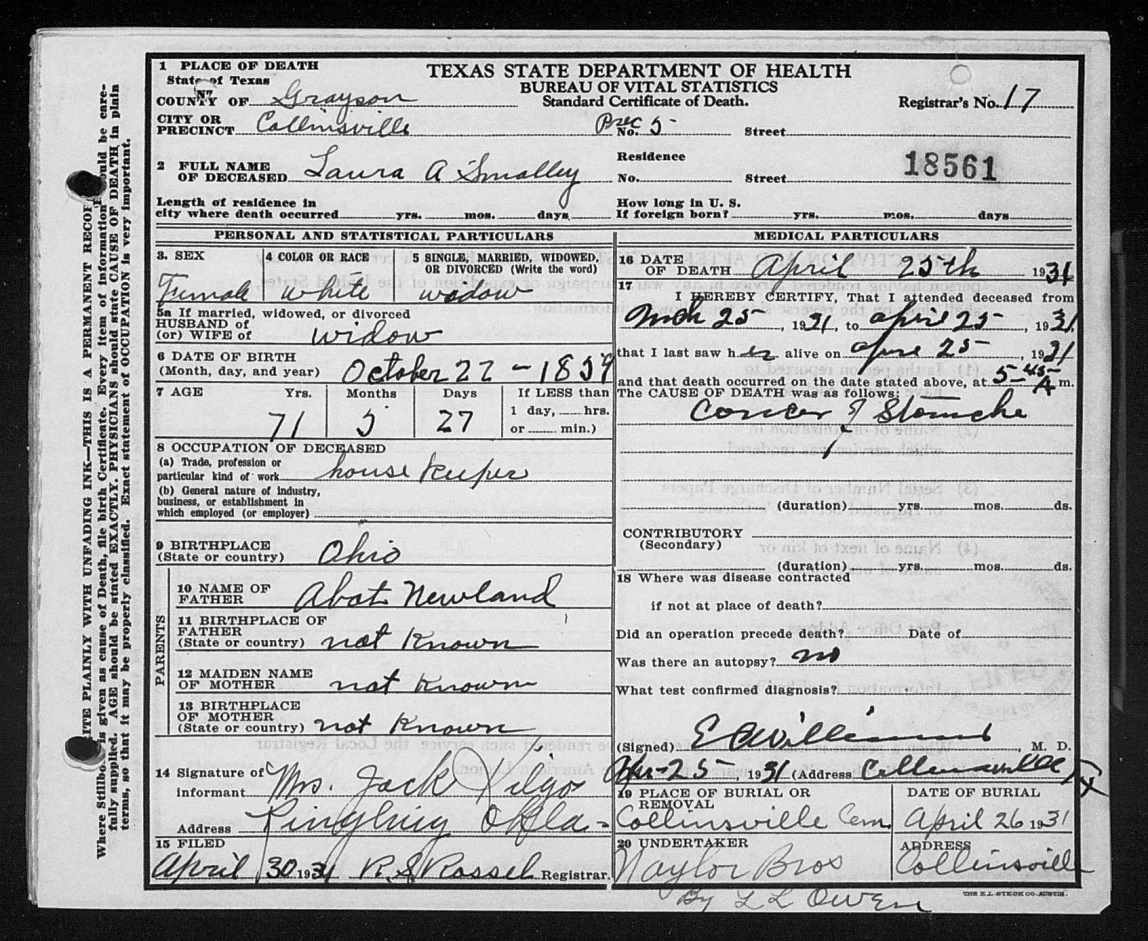 1 PLACE OF DEATH
State of Texas
COUNTY OF Grayson
CITY OR PRECINCT Collinsville
TEXAS STATE DEPARTMENT OF HEALTH
BUREAU OF VITAL STATISTICS
Standard Certificate of Death.
Registrar's No. 17
Prec No. 5 Street
2 FULL NAME OF DECEASED Laura A Smalley
Residence
No. Street
18561
Length of residence in
city where death occurred yrs. mos. days
How long in U. S.
If foreign born? yrs. mos. days
PERSONAL AND STATISTICAL PARTICULARS
3. SEX
Female
4 COLOR OR RACE
white
5 SINGLE, MARRIED, WIDOWED,
OR DIVORCED (Write the word)
widow
5a If married, widowed, or divorced
HUSBAND OF
(or) WIFE of widow
6 DATE OF BIRTH
(Month, day, and year) October 22 - 1859
7 AGE Yrs. Months Days If LESS than
71 5 27 1 day, hrs.
or min.)
8 OCCUPATION OF DECEASED
(a) Trade, profession or
particular kind of work house keeper
(b) General nature of industry,
business, or establishment in
which employed (or employer)
9 BIRTHPLACE
(State or country) Ohio
PARENTS
10 NAME OF
FATHER Abot Newland
11 BIRTHPLACE OF
FATHER
(State or country) not Known
12 MAIDEN NAME
OF MOTHER not Known
13 BIRTHPLACE
OF MOTHER
(State or country) not Known
14 Signature of
informant Mrs. Jack Kilgo
Address Okla-
15 FILED
April 30 1931 Registrar.
MEDICAL PARTICULARS
16 DATE
OF DEATH April 25th 1931
17
I HEREBY CERTIFY, That I attended deceased from
Mch 25, 1931, to april 25, 1931
that I last saw her alive on april 25, 1931
and that death occurred on the date stated above, at 5-45 A m.
The CAUSE OF DEATH was as follows:
Cancer of Stomache
(duration) yrs. mos. ds.
CONTRIBUTORY
(Secondary)
(duration) yrs. mos. ds.
18 Where was disease contracted
if not at place of death?
Did an operation precede death? Date of
Was there an autopsy? no
What test confirmed diagnosis?
(Signed) M. D.
Apr-25, 1931 (Address Collinsville Tx
19 PLACE OF BURIAL OR
REMOVAL
Collinsville Cem.
DATE OF BURIAL
April 26 1931
20 UNDERTAKER
Naylor Bros
By L L Owen
ADDRESS
Collinsville
THE E.L. STECK CO. AUSTIN.
WRITE PLAINLY WITH UNFADING INK—THIS IS A PERMANENT RECORD
Where Stillborn is given as cause of Death, file birth Certificate. Every item of information should be care-
fully supplied. AGE should be stated EXACTLY. PHYSICIANS should state CAUSE OF DEATH in plain
terms, so that it may be properly classified. Exact statement of OCCUPATION is very important.